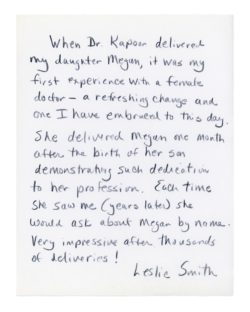 When Dr. Kapoor delivered
my daughter Megan, it was my
first experience with a female
doctor – a refreshing change and
one I have embraced to this day.
She delivered Megan one month
after the birth of her son
demonstrating such dedication
to her profession. Each time
she saw me (years later) she
would ask about Megan by name.
Very impressive after thousands
of deliveries!
Leslie Smith